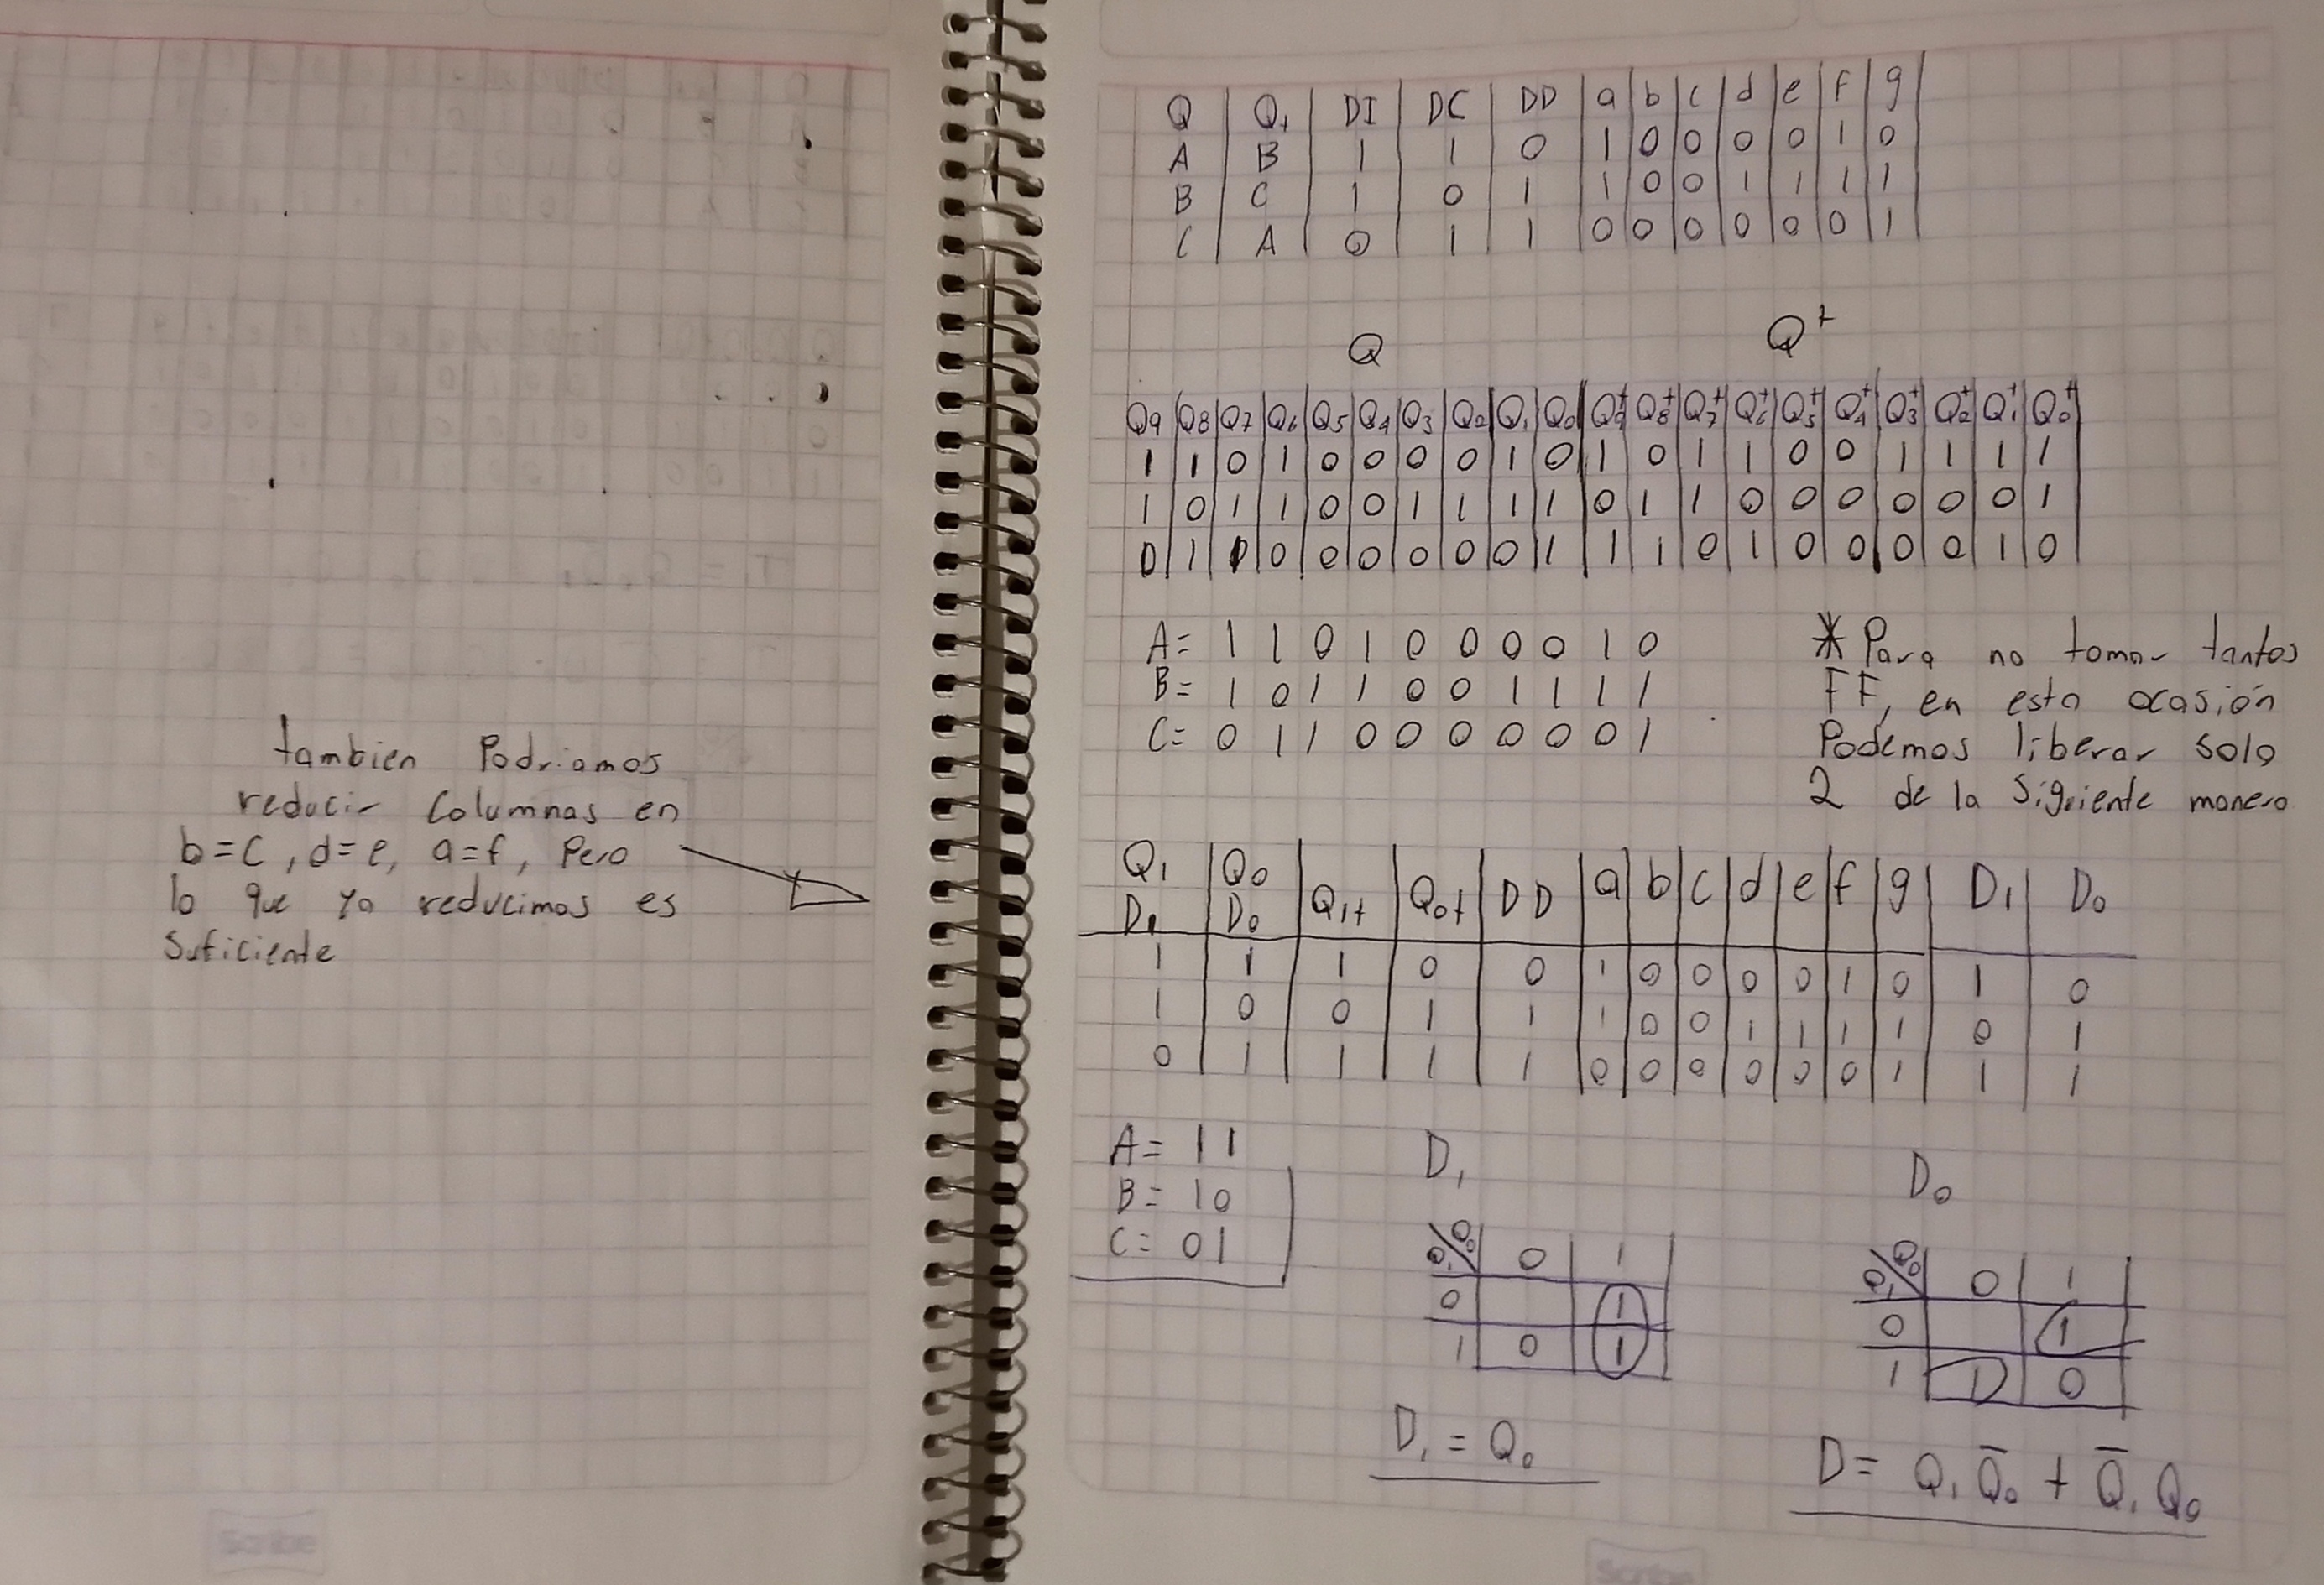 tambien Podriamos
reducir Columnas en
b=c, d=e, a=f, Pero
lo que ya reducimos es
Suficiente
Q Q+ DI DC DD a b c d e f g
A B 1 1 0 1 0 0 0 0 1 0
B C 1 0 1 1 0 0 1 1 1 1
C A 0 1 1 0 0 0 0 0 0 1
Q Q+
Q9 Q8 Q7 Q6 Q5 Q4 Q3 Q2 Q1 Q0 Q9+ Q8+ Q7+ Q6+ Q5+ Q4+ Q3+ Q2+ Q1+ Q0+
1 1 0 1 0 0 0 0 1 0 1 0 1 1 0 0 1 1 1 1
1 0 1 1 0 0 1 1 1 1 0 1 1 0 0 0 0 0 0 1
0 1 1 0 0 0 0 0 0 1 1 1 0 1 0 0 0 0 1 0
A= 1 1 0 1 0 0 0 0 1 0
B= 1 0 1 1 0 0 1 1 1 1
C= 0 1 1 0 0 0 0 0 0 1
* Para no tomar tantos
FF, en esta ocasión
Podemos liberar solo
2 de la Siguiente manera
Q1 Q0 Q1+ Q0+ DD a b c d e f g D1 D0
D1 D0
1 1 1 0 0 1 0 0 0 0 1 0 1 0
1 0 0 1 1 1 0 0 1 1 1 1 0 1
0 1 1 1 1 0 0 0 0 0 0 1 1 1
A= 11
B= 10
C= 01
D1
Q1 Q0 0 1
0 1
1 0 1
D1 = Q0
D0
Q1 Q0 0 1
0 1
1 1 0
D= Q1 Q̅0 + Q̅1 Q0
Scribe
Scribe